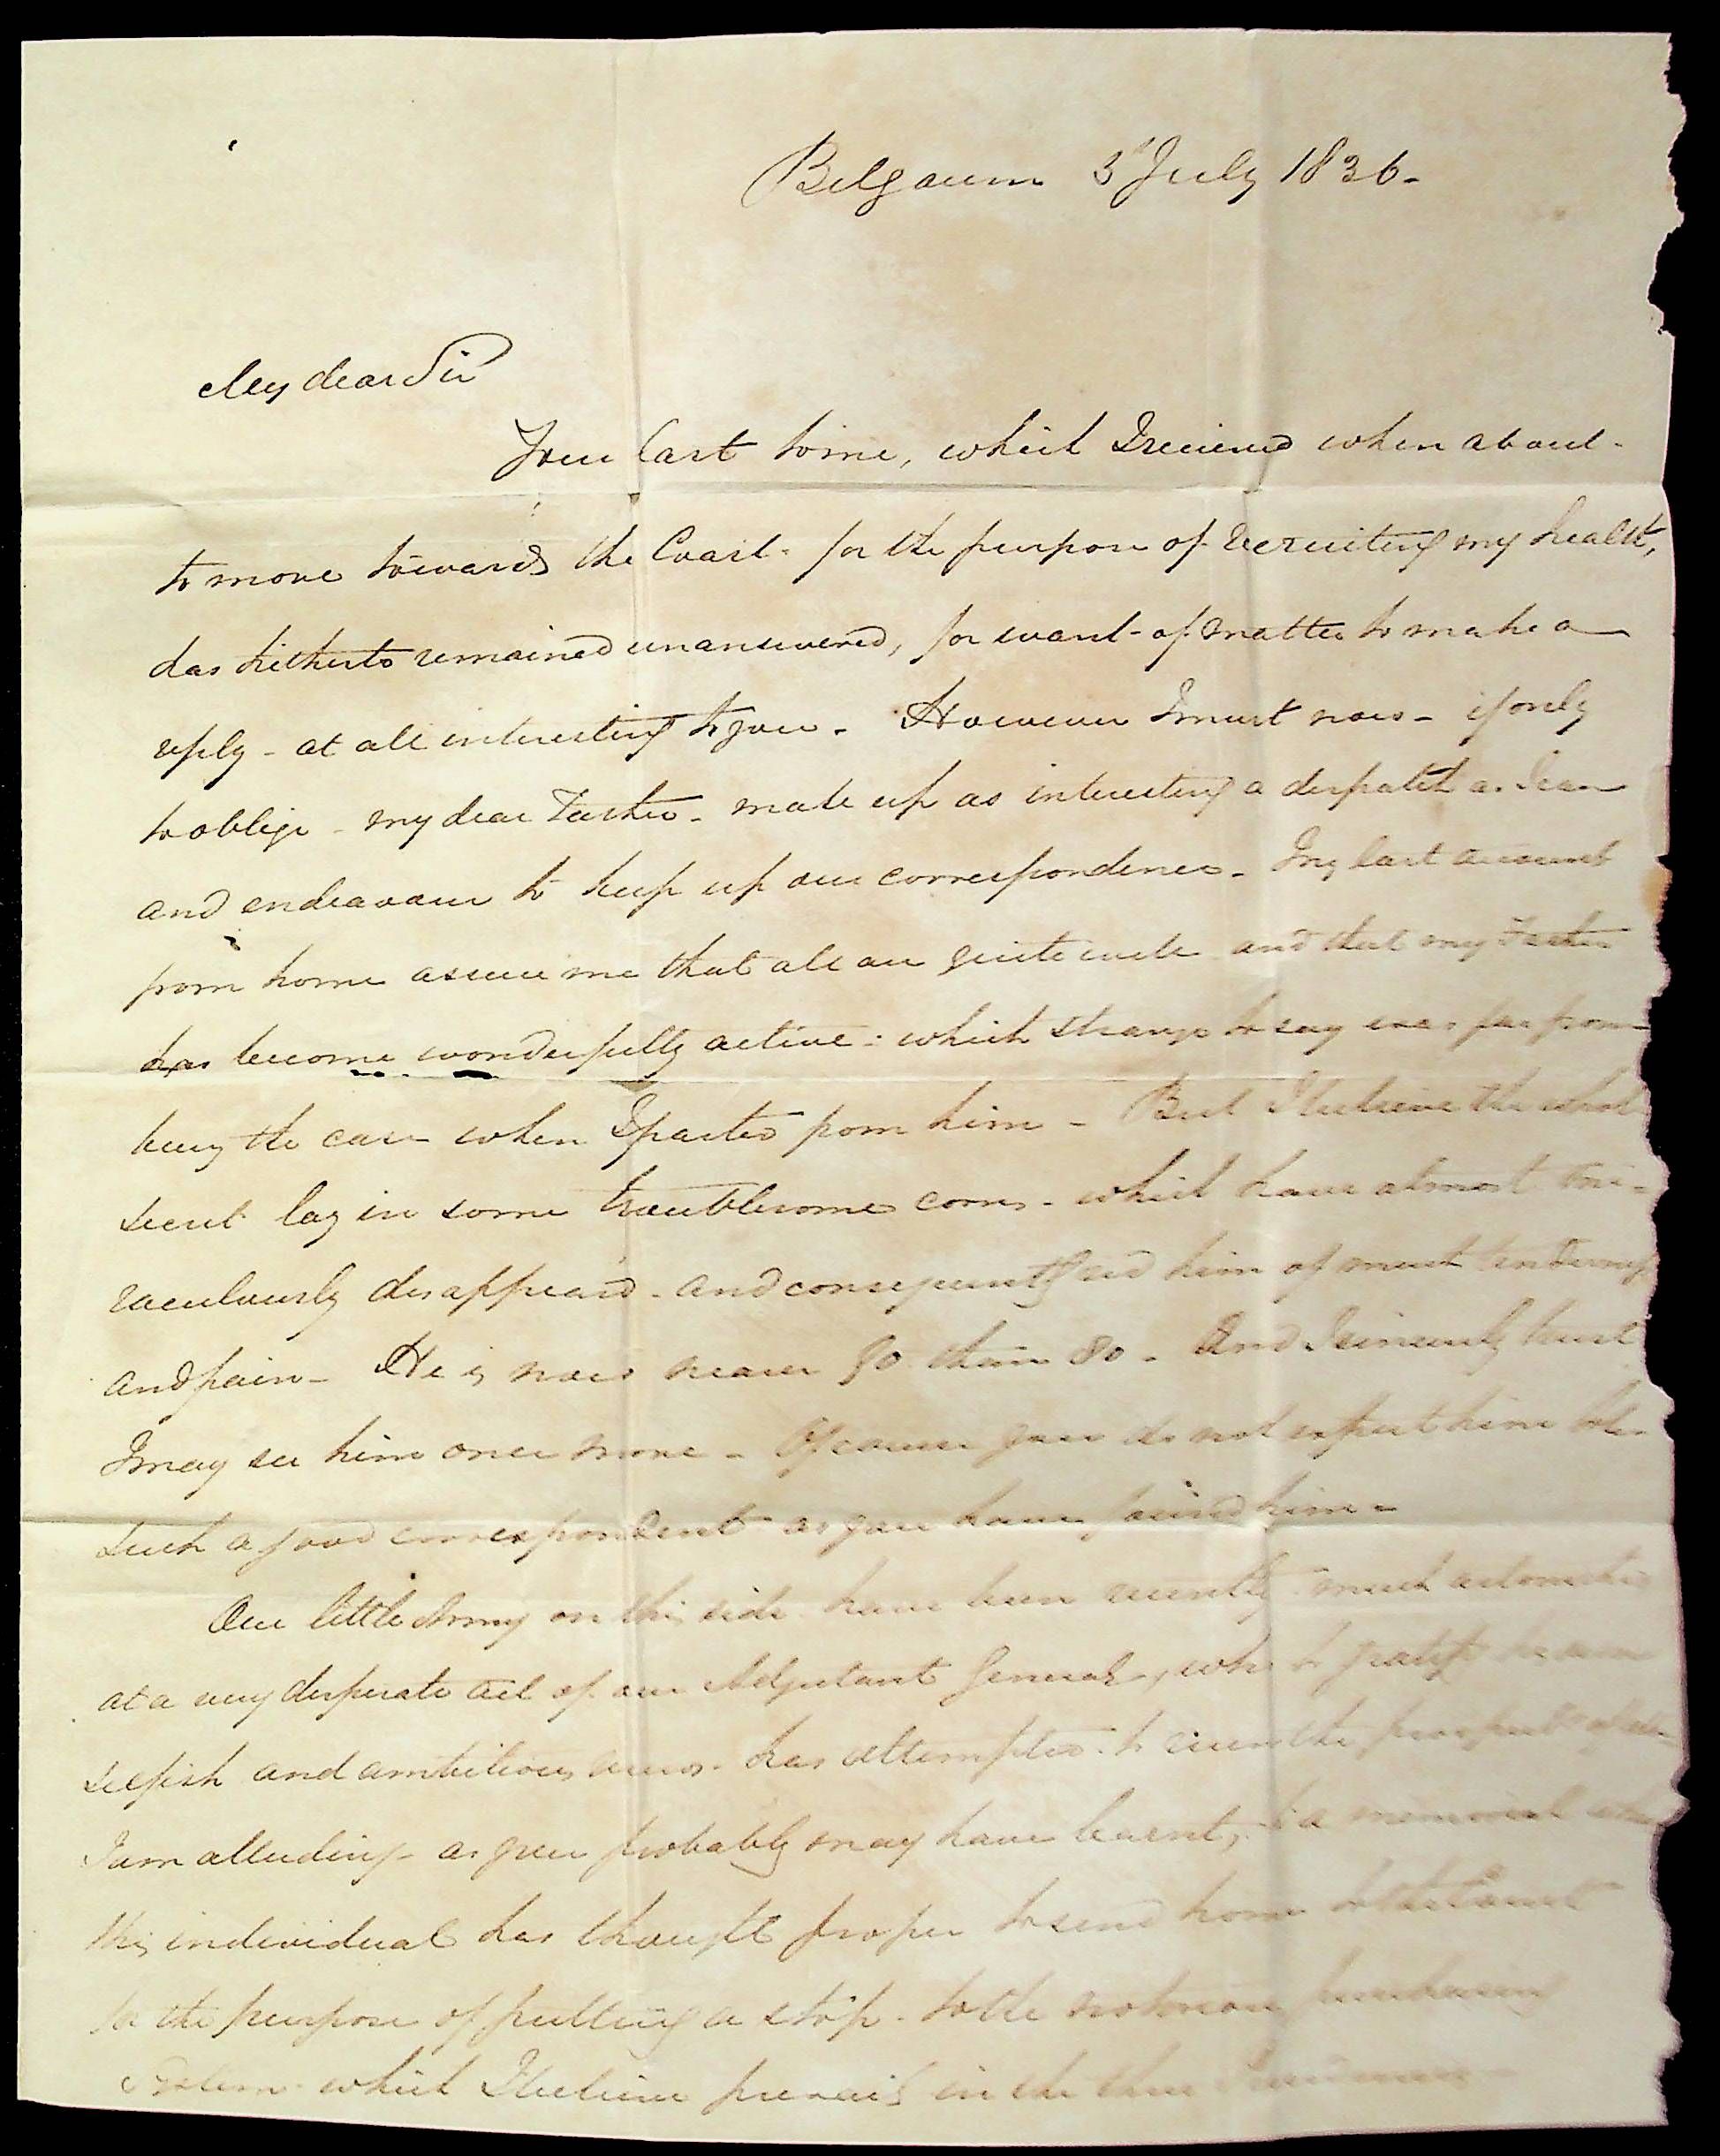 Belgaum 3d July 1836-
My dear Sir
Your last to me, which I received when about-
to move towards the Coast- for the purpose of recruiting my health,
has hitherto remained unanswered, for want- of matter to make a
reply- at all interesting to you- However I must now- if only
to oblige- my dear Father- make up as interesting a despatch as I can
and endeavour to keep up our correspondence- My last accounts
from home assure me that all are quite well and that my Father
has become wonderfully active: which strange to say was far from
being the case when I parted from him- But I believe the whole
secret lay in some troublesome corns- which have almost mi-
raculously disappeard- and consequently rid him of much
and pain- He is now nearer 90 than 80- And I sincerely trust
I may see him once more- Of course you do not expect him to be
such a good correspondent as you have found him-
Our little Army on this side have been recently much astonished
at a very desperate act of our Adjutant General, who to gratify his own
selfish and ambitious views- has attempted to ruin the prospects of
I am alluding- as you probably may have learnt, to a memorial
this individual has thought proper to send home to the Court
for the purpose of putting a stop- to the notorious purchasing
System- which I believe prevails in the three